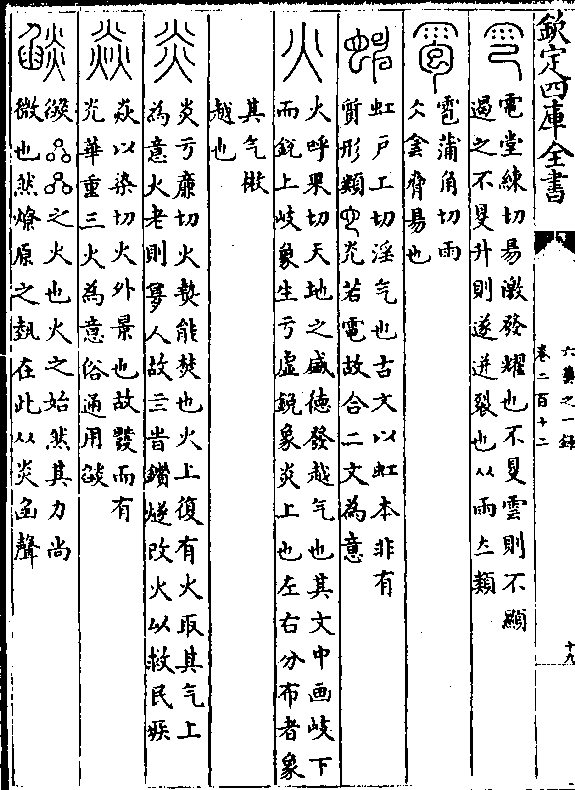 欽定四庫全書
六藝之一錄
卷二百十二
十九
電堂練切昜激發耀也不㫐雲則不顯
遏之不㫐升則遂迸裂也从雨𠫓類
雹蒲角切雨
仌雲脅昜也
虹戸工切淫气也古文以虹本非有
質形類虫光若電故合二文為意
火呼果切天地之盛德發越气也其文中画岐下
而銳上岐象生亏虛銳象炎上也左右分布者象
其气㪚
越也
炎亏廉切火㷱能焚也火上復有火取其气上
為意火老則㝱人故三旹鑽燧改火以救民疾
焱以染切火外景也故㸚而有
光華重三火為意俗通用焰
燄之火也火之始然其力尚
微也然燎原之執在此从炎臽聲